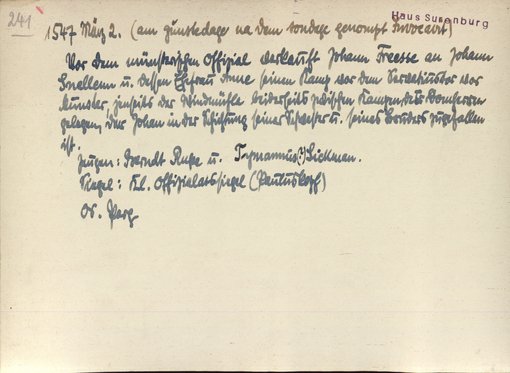 241
Haus Surenburg
1547 März 2. (am gunstedage na dem sondage genompt Invocavit)
Vor dem münsterischen Offizial verkauft Johann Freesse an Johann
Snellenn u. dessen Ehefrau Anne seinen Kamp vor dem Servatiustor vor
Münster, jenseits der Windmühle beiderseits zwischen Kampen der Domherren
gelegen, der Johan in der Schichtung seiner Schwester u. seines Bruders zugefallen
ist.
Zeugen: Berndt u. Tymannus (?) Lickman.
Siegel: Kl. Offizialatssiegel (Pauluskopf)
Or. Perg